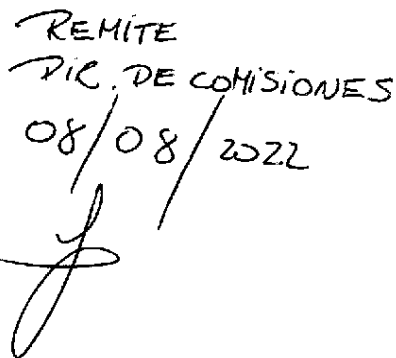 REMITE
DIR. DE COMISIONES
08/08/2022